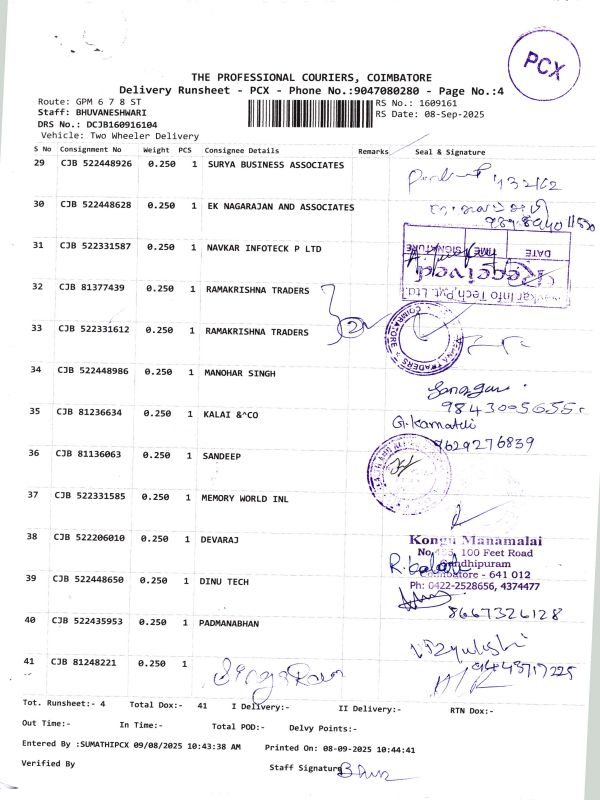 PCX
THE PROFESSIONAL COURIERS, COIMBATORE
Delivery Runsheet - PCX - Phone No.:9047080280 - Page No.:4
Route: GPM 6 7 8 ST
RS No.: 1609161
Staff: BHUVANESHWARI
RS Date: 08-Sep-2025
DRS No.: DCJB160916104
Vehicle: Two Wheeler Delivery
S No Consignment No Weight PCS Consignee Details Remarks Seal & Signature
29 CJB 522448926 0.250 1 SURYA BUSINESS ASSOCIATES
30 CJB 522448628 0.250 1 EK NAGARAJAN AND ASSOCIATES
31 CJB 522331587 0.250 1 NAVKAR INFOTECK P LTD
DATE TIME SIGNATURE
Received
Info Tech Pvt. Ltd.
32 CJB 81377439 0.250 1 RAMAKRISHNA TRADERS
33 CJB 522331612 0.250 1 RAMAKRISHNA TRADERS 2
TRADERS COIMBATORE
34 CJB 522448986 0.250 1 MANOHAR SINGH
9843005655
35 CJB 81236634 0.250 1 KALAI &^CO
G. Kamatchi
9629276839
36 CJB 81136063 0.250 1 SANDEEP
37 CJB 522331585 0.250 1 MEMORY WORLD INL
38 CJB 522206010 0.250 1 DEVARAJ
Kongu Manamalai
100 Feet Road
Gandhipuram
Coimbatore - 641 012
Ph: 0422-2528656, 4374477
39 CJB 522448650 0.250 1 DINU TECH
8667326128
40 CJB 522435953 0.250 1 PADMANABHAN
41 CJB 81248221 0.250 1
9443717225
Tot. Runsheet:- 4 Total Dox:- 41 I Delivery:- II Delivery:- RTN Dox:-
Out Time:- In Time:- Total POD:- Delvy Points:-
Entered By :SUMATHIPCX 09/08/2025 10:43:38 AM Printed On: 08-09-2025 10:44:41
Verified By Staff Signature